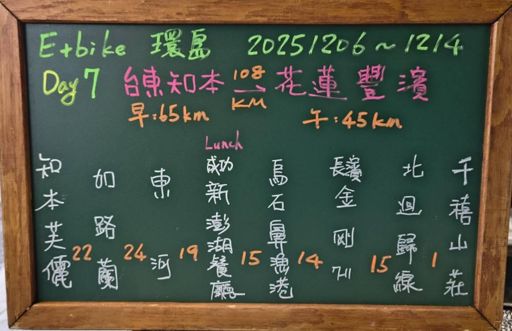 E+bike 環島 20251206~1214
Day 7 台東知本 108 KM → 花蓮豐濱
早:65km 午:45km
Lunch
知本芙儷
22
加路蘭
24
東河
19
成功新澎湖餐廳
15
烏石鼻漁港
14
長濱金剛
15
北迴歸線
1
千禧山莊